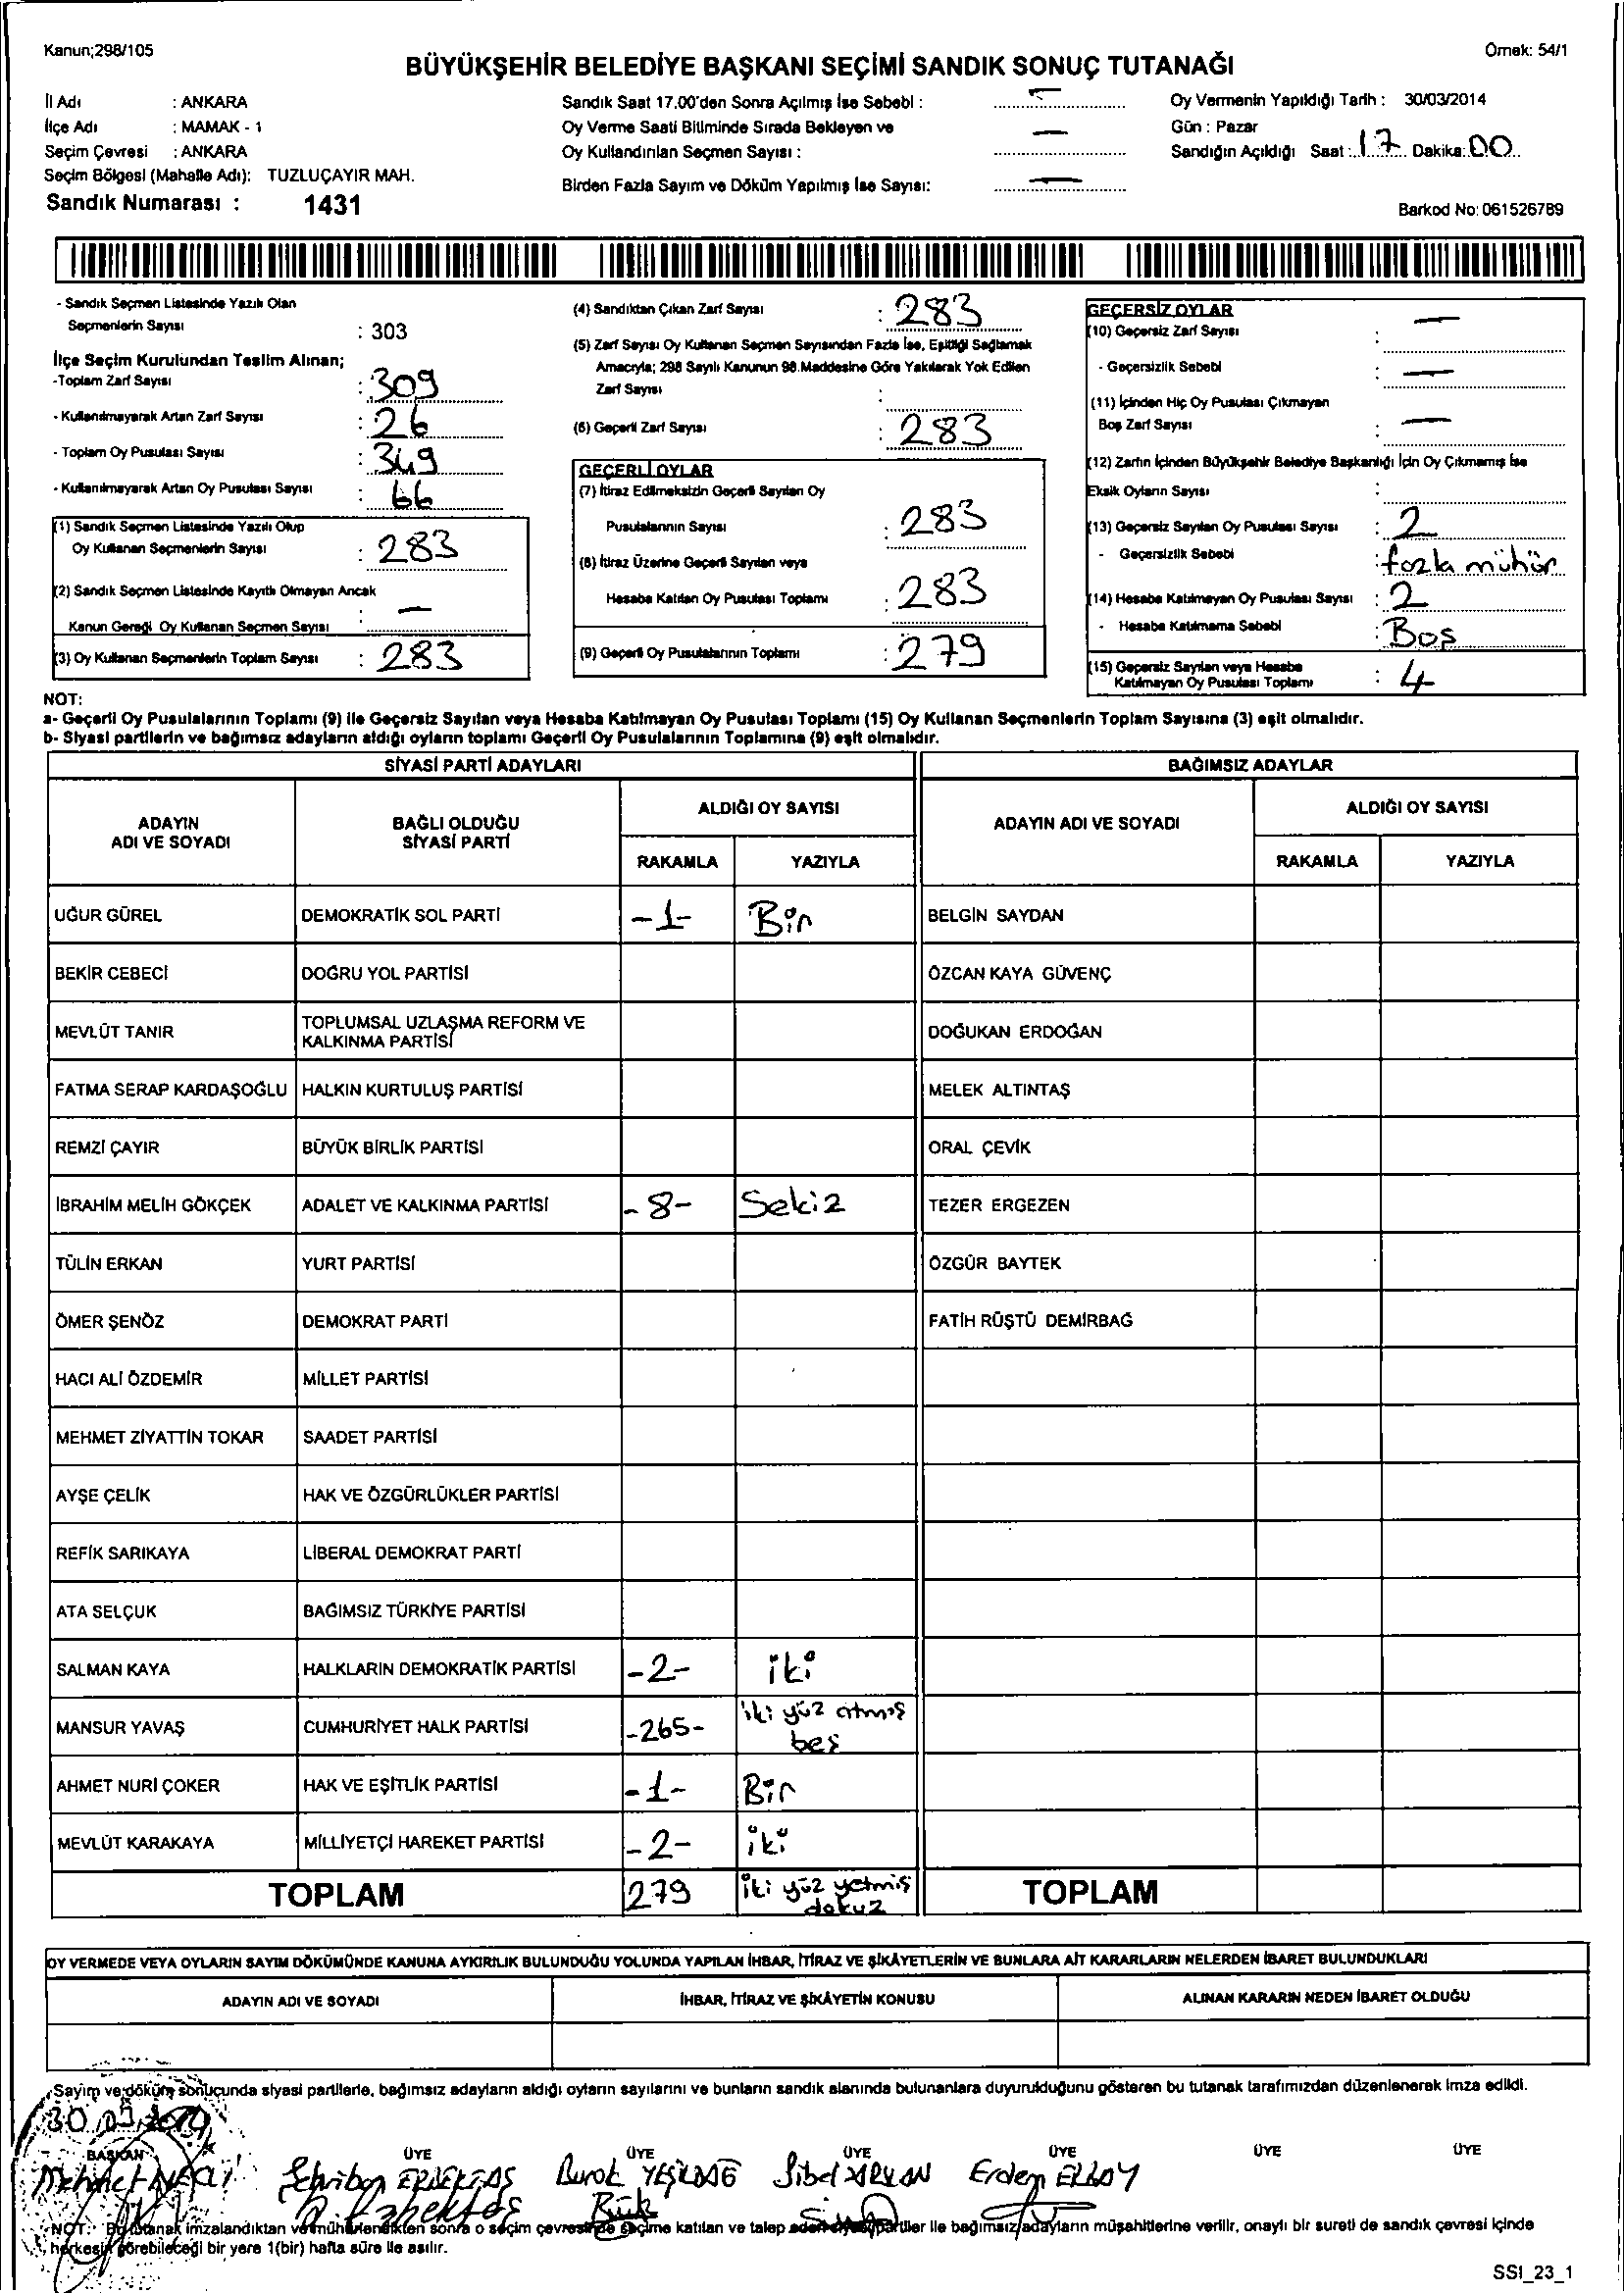 Kanun;298/105
Örnek: 54/1
BÜYÜKŞEHİR BELEDİYE BAŞKANI SEÇİMİ SANDIK SONUÇ TUTANAĞI
İl Adı : ANKARA
İlçe Adı : MAMAK - 1
Seçim Çevresi : ANKARA
Seçim Bölgesi (Mahalle Adı): TUZLUÇAYIR MAH.
Sandık Numarası : 1431
Sandık Saat 17.00'den Sonra Açılmış İse Sebebi : —
Oy Verme Saati Bitiminde Sırada Bekleyen ve
Oy Kullandırılan Seçmen Sayısı : —
Birden Fazla Sayım ve Döküm Yapılmış İse Sayısı: —
Oy Vermenin Yapıldığı Tarih : 30/03/2014
Gün : Pazar
Sandığın Açıldığı Saat : 17 Dakika: 00
Barkod No: 061526789
- Sandık Seçmen Listesinde Yazılı Olan
Seçmenlerin Sayısı : 303
İlçe Seçim Kurulundan Teslim Alınan;
-Toplam Zarf Sayısı : 309
- Kullanılmayarak Artan Zarf Sayısı : 26
- Toplam Oy Pusulası Sayısı : 349
- Kullanılmayarak Artan Oy Pusulası Sayısı : 66
(1) Sandık Seçmen Listesinde Yazılı Olup
Oy Kullanan Seçmenlerin Sayısı : 283
(2) Sandık Seçmen Listesinde Kayıtlı Olmayan Ancak
Kanun Gereği Oy Kullanan Seçmen Sayısı : —
(3) Oy Kullanan Seçmenlerin Toplam Sayısı : 283
(4) Sandıktan Çıkan Zarf Sayısı : 283
(5) Zarf Sayısı Oy Kullanan Seçmen Sayısından Fazla İse, Eşitliği Sağlamak
Amacıyla; 298 Sayılı Kanunun 98.Maddesine Göre Yakılarak Yok Edilen
Zarf Sayısı :
(6) Geçerli Zarf Sayısı : 283
GEÇERLİ OYLAR
(7) İtiraz Edilmeksizin Geçerli Sayılan Oy
Pusulalarının Sayısı : 283
(8) İtiraz Üzerine Geçerli Sayılan veya
Hesaba Katılan Oy Pusulası Toplamı : 283
(9) Geçerli Oy Pusulalarının Toplamı : 279
GEÇERSİZ OYLAR
(10) Geçersiz Zarf Sayısı : —
- Geçersizlik Sebebi : —
(11) İçinden Hiç Oy Pusulası Çıkmayan
Boş Zarf Sayısı : —
(12) Zarfın İçinden Büyükşehir Belediye Başkanlığı İçin Oy Çıkmamış İse
Eksik Oyların Sayısı :
(13) Geçersiz Sayılan Oy Pusulası Sayısı : 2
- Geçersizlik Sebebi : fazla mühür
(14) Hesaba Katılmayan Oy Pusulası Sayısı : 2
- Hesaba Katılmama Sebebi : Boş
(15) Geçersiz Sayılan veya Hesaba
Katılmayan Oy Pusulası Toplamı : 4
NOT:
a- Geçerli Oy Pusulalarının Toplamı (9) ile Geçersiz Sayılan veya Hesaba Katılmayan Oy Pusulası Toplamı (15) Oy Kullanan Seçmenlerin Toplam Sayısına (3) eşit olmalıdır.
b- Siyasi partilerin ve bağımsız adayların aldığı oyların toplamı Geçerli Oy Pusulalarının Toplamına (9) eşit olmalıdır.
SİYASİ PARTİ ADAYLARI BAĞIMSIZ ADAYLAR
ADAYIN ADI VE SOYADI BAĞLI OLDUĞU SİYASİ PARTİ ALDIĞI OY SAYISI ADAYIN ADI VE SOYADI ALDIĞI OY SAYISI
RAKAMLA YAZIYLA RAKAMLA YAZIYLA
UĞUR GÜREL DEMOKRATİK SOL PARTİ -1- Bir BELGİN SAYDAN
BEKİR CEBECİ DOĞRU YOL PARTİSİ ÖZCAN KAYA GÜVENÇ
MEVLÜT TANIR TOPLUMSAL UZLAŞMA REFORM VE KALKINMA PARTİSİ DOĞUKAN ERDOĞAN
FATMA SERAP KARDAŞOĞLU HALKIN KURTULUŞ PARTİSİ MELEK ALTINTAŞ
REMZİ ÇAYIR BÜYÜK BİRLİK PARTİSİ ORAL ÇEVİK
İBRAHİM MELİH GÖKÇEK ADALET VE KALKINMA PARTİSİ -8- Sekiz TEZER ERGEZEN
TÜLİN ERKAN YURT PARTİSİ ÖZGÜR BAYTEK
ÖMER ŞENÖZ DEMOKRAT PARTİ FATİH RÜŞTÜ DEMİRBAĞ
HACI ALİ ÖZDEMİR MİLLET PARTİSİ
MEHMET ZİYATTİN TOKAR SAADET PARTİSİ
AYŞE ÇELİK HAK VE ÖZGÜRLÜKLER PARTİSİ
REFİK SARIKAYA LİBERAL DEMOKRAT PARTİ
ATA SELÇUK BAĞIMSIZ TÜRKİYE PARTİSİ
SALMAN KAYA HALKLARIN DEMOKRATİK PARTİSİ -2- iki
MANSUR YAVAŞ CUMHURİYET HALK PARTİSİ -265- iki yüz atmış beş
AHMET NURİ ÇOKER HAK VE EŞİTLİK PARTİSİ -1- Bir
MEVLÜT KARAKAYA MİLLİYETÇİ HAREKET PARTİSİ -2- iki
TOPLAM 279 iki yüz yetmiş dokuz TOPLAM
OY VERMEDE VEYA OYLARIN SAYIM DÖKÜMÜNDE KANUNA AYKIRILIK BULUNDUĞU YOLUNDA YAPILAN İHBAR, İTİRAZ VE ŞİKÂYETLERİN VE BUNLARA AİT KARARLARIN NELERDEN İBARET BULUNDUKLARI
ADAYIN ADI VE SOYADI İHBAR, İTİRAZ VE ŞİKÂYETİN KONUSU ALINAN KARARIN NEDEN İBARET OLDUĞU
Sayım ve döküm sonucunda siyasi partilerle, bağımsız adayların aldığı oyların sayılarını ve bunların sandık alanında bulunanlara duyurulduğunu gösteren bu tutanak tarafımızdan düzenlenerek imza edildi.
30.03.2014
BAŞKAN ÜYE ÜYE ÜYE ÜYE ÜYE ÜYE
Mehmet Burak YEŞİLDAĞ Sibel Erdem
NOT: Bu tutanak imzalandıktan ve mühürlendikten sonra o seçim çevresinde seçime katılan ve talep eden siyasi partiler ile bağımsız adayların müşahitlerine verilir, onaylı bir sureti de sandık çevresi içinde
herkesin görebileceği bir yere 1(bir) hafta süre ile asılır.
SSI_23_1